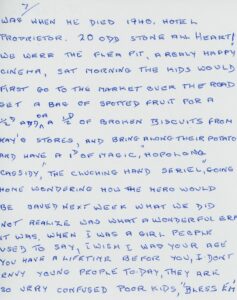 7/
WAS WHEN HE DIED 1948. HOTEL
PROPRIETOR. 20 ODD STONE ALL HEART!
WE WERE THE FLEA PIT, A REALY HAPPY
CINEMA, SAT MORNING THE KIDS WOULD
FIRST GO TO THE MARKET OVER THE ROAD
GET A BAG OF SPOTTED FRUIT FOR A
½D OR A ½D OF BROKEN BISCUITS FROM
KAY'S STORES, AND BRING ALONG THEIR POTATO
AND HAVE A 1D OF MAGIC, "HOPOLONG
CASSIDY", "THE CLUCHING HAND SERIEL", GOING
HOME WONDERING HOW THE HERO WOULD
BE SAVED NEXT WEEK WHAT WE DID
NOT REALIZE WAS WHAT A WONDERFUL ERA
IT WAS, WHEN I WAS A GIRL PEOPLE
USED TO SAY, I WISH I WAS YOUR AGE
YOU HAVE A LIFETIME BEFOR YOU, I DONT
ENVY YOUNG PEOPLE TO-DAY, THEY ARE
SO VERY CONFUSED POOR KIDS, "BLESS EM"